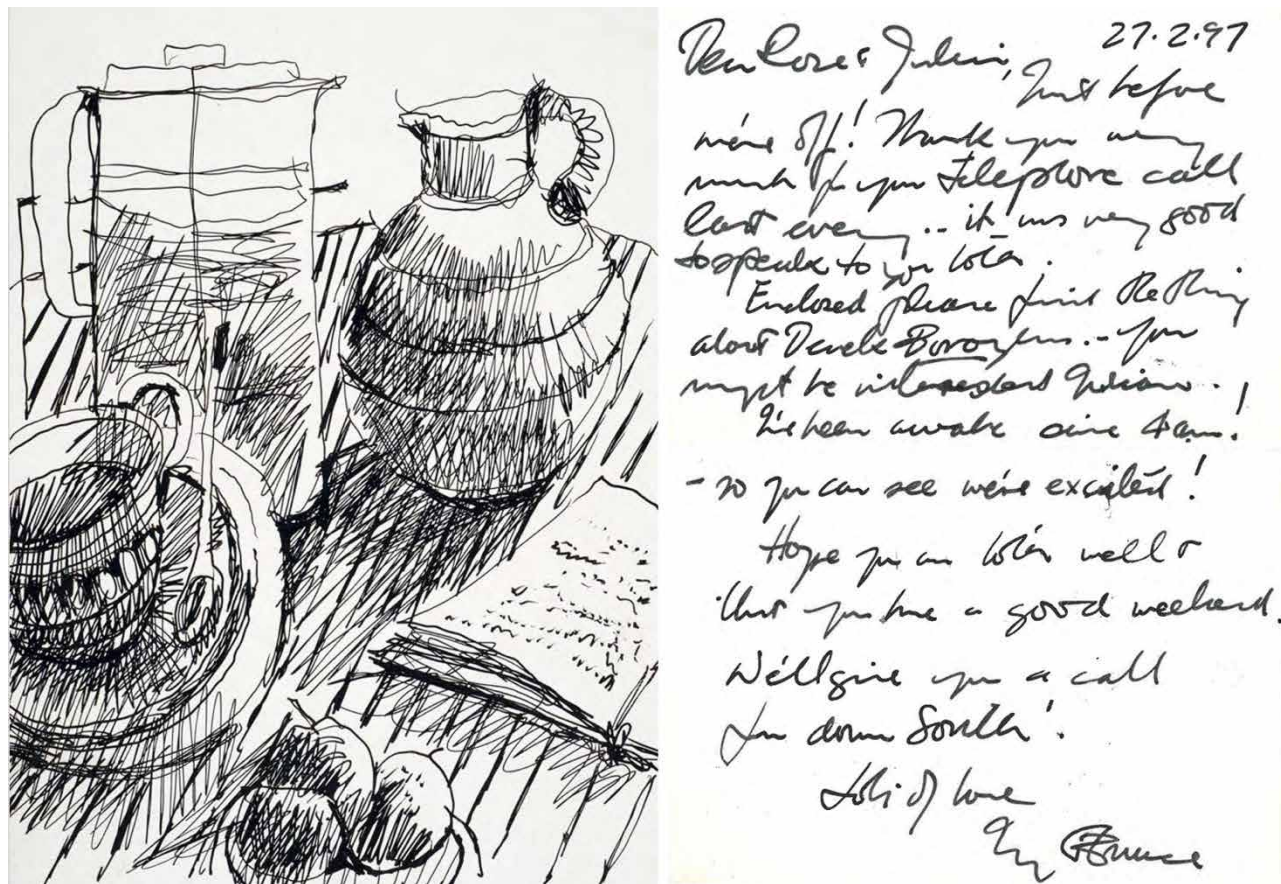 27.2.97
Dear Rose & Julian,
Just before
we're off! Thank you very
much for your telephone call
last evening.. it was very good
to speak to you both.
Enclosed please find the thing
about Derek .. you
might be interested Julian.
I've been awake since 4am!
- so you can see we're excited!
Hope you are both well &
that you have a good weekend.
We'll give you a call
from down South!
Lots of love
Bruce